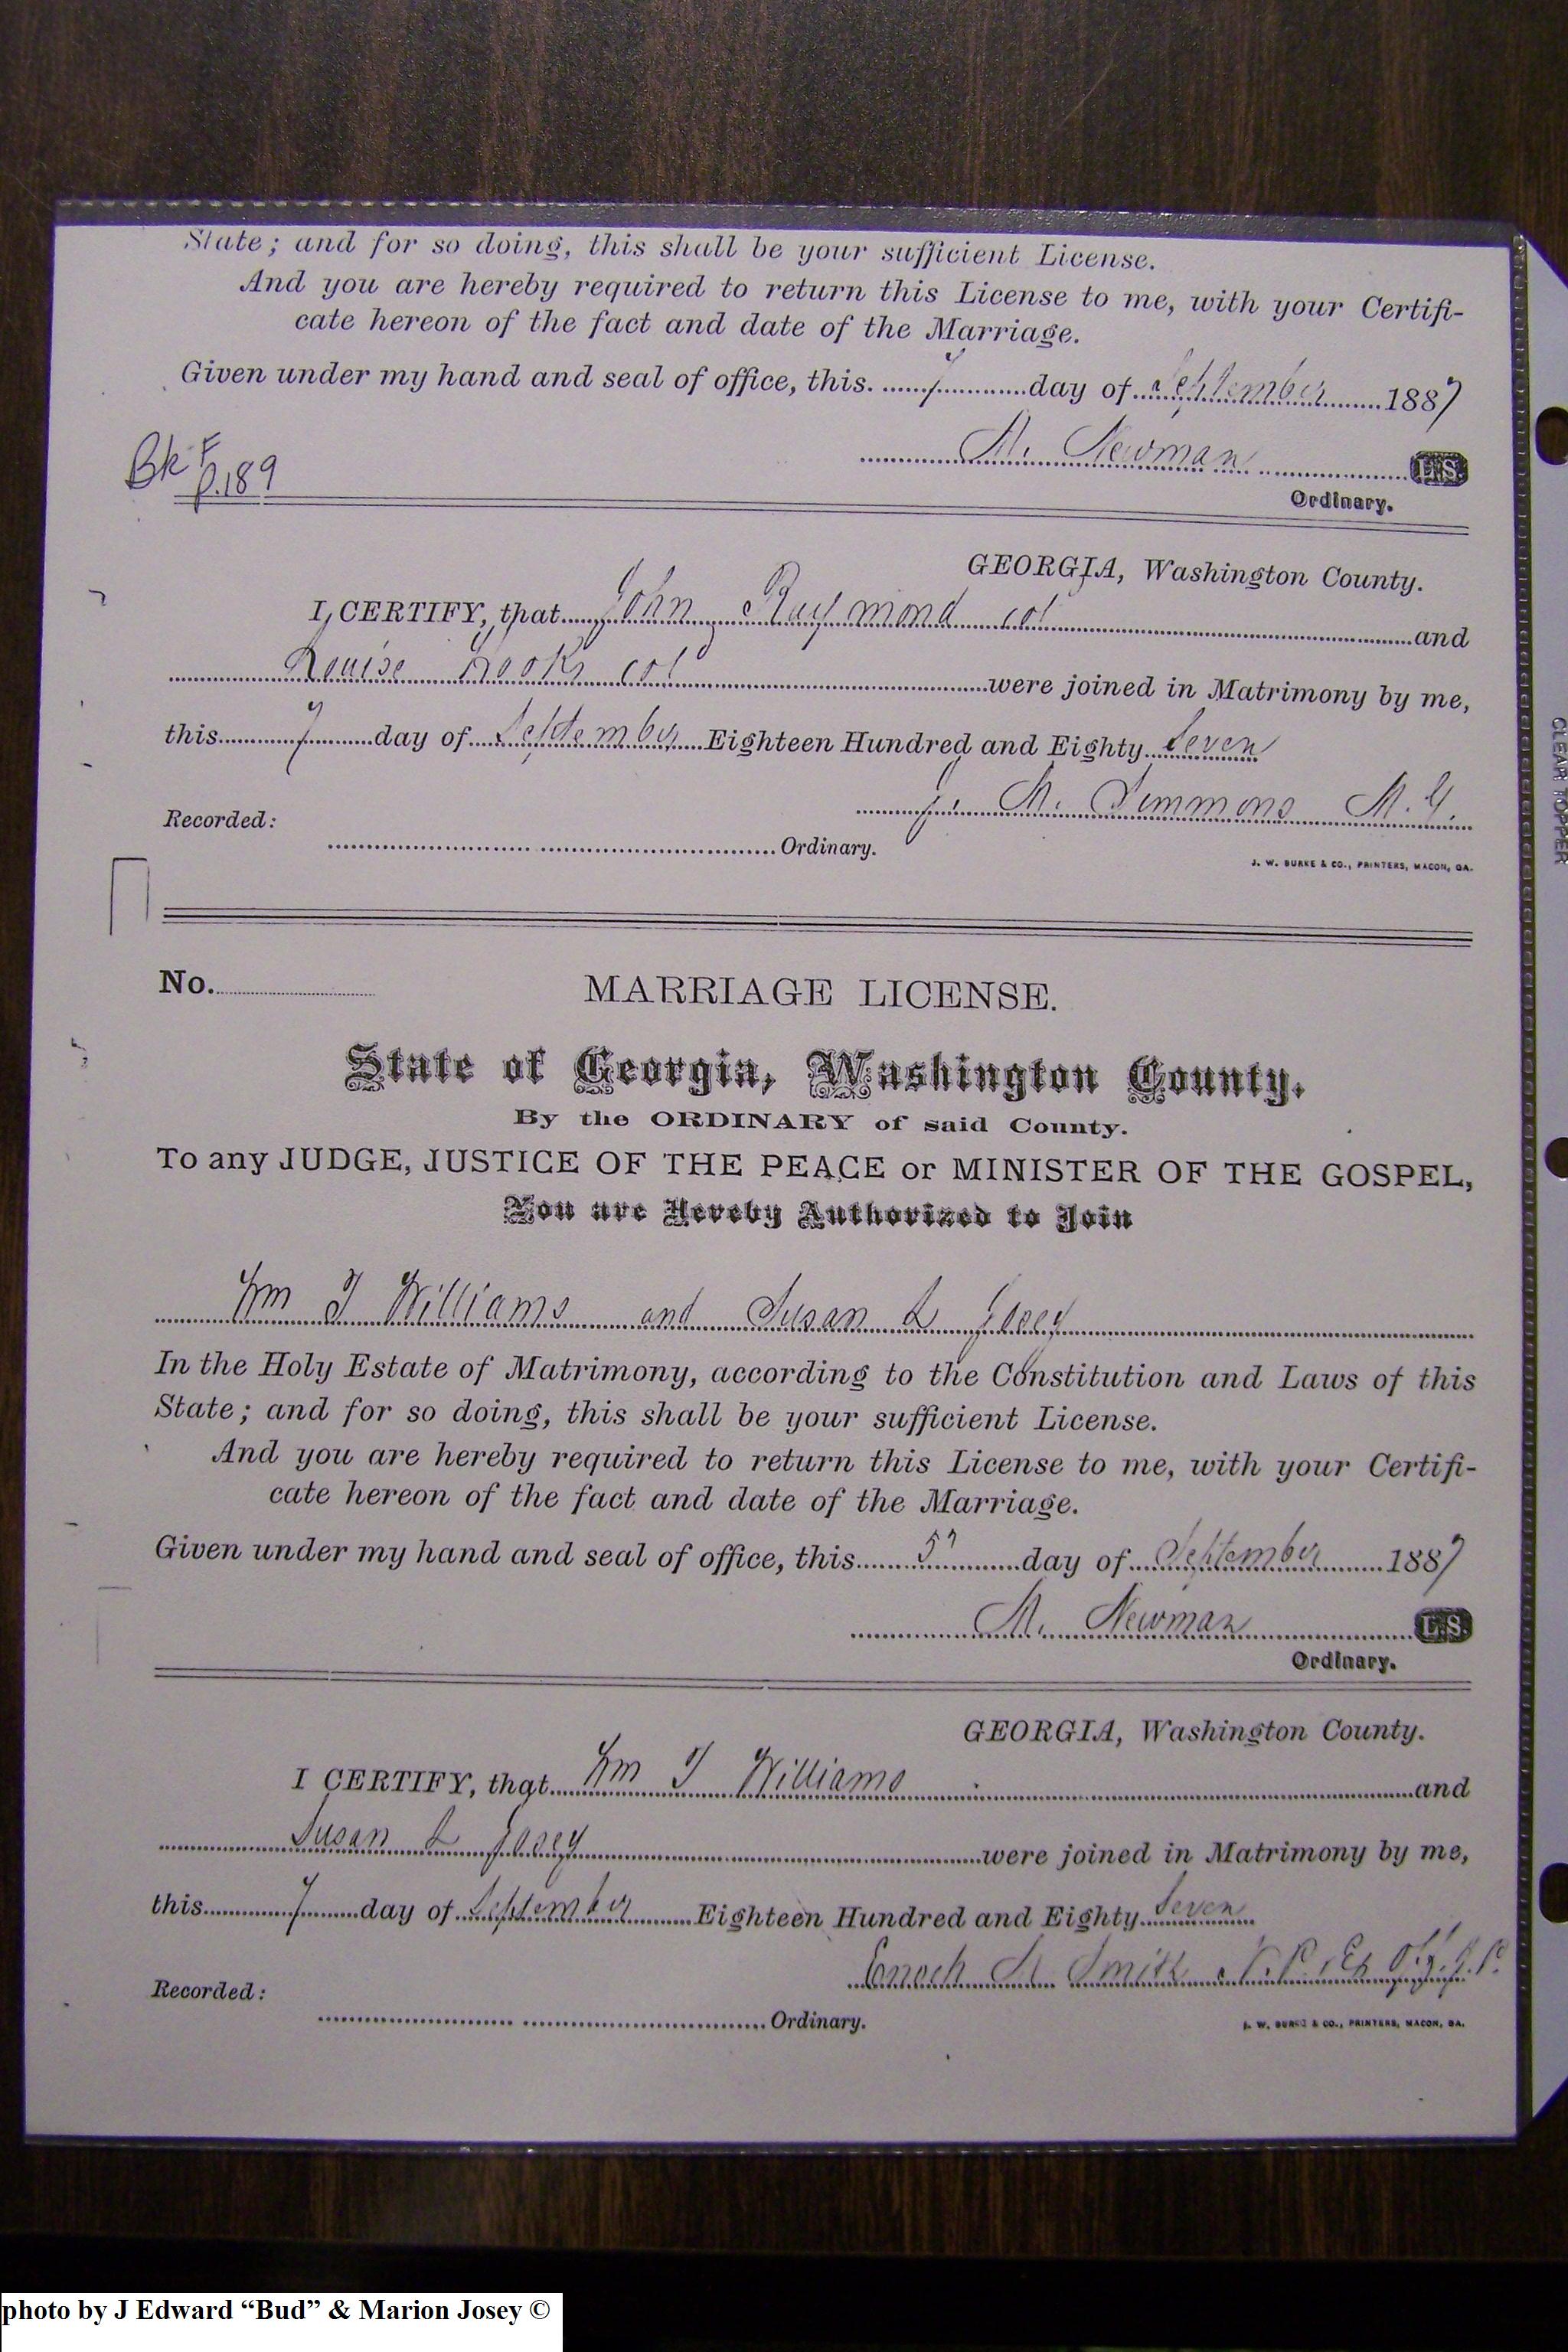 State; and for so doing, this shall be your sufficient License.
And you are hereby required to return this License to me, with your Certifi-
cate hereon of the fact and date of the Marriage.
Given under my hand and seal of office, this 7 day of September 1887
M. Newman L.S.
Ordinary.
Bk F
p.189
GEORGIA, Washington County.
I, CERTIFY, that John Raymond col and
Louise Hooks col were joined in Matrimony by me,
this 7 day of September Eighteen Hundred and Eighty Seven
J. M. Simmons M.G.
Recorded:
Ordinary.
J. W. BURKE & CO., PRINTERS, MACON, GA.
No.
MARRIAGE LICENSE.
State of Georgia, Washington County.
By the ORDINARY of said County.
To any JUDGE, JUSTICE OF THE PEACE or MINISTER OF THE GOSPEL,
You are Hereby Authorized to Join
Wm T Williams and Susan L Josey
In the Holy Estate of Matrimony, according to the Constitution and Laws of this
State; and for so doing, this shall be your sufficient License.
And you are hereby required to return this License to me, with your Certifi-
cate hereon of the fact and date of the Marriage.
Given under my hand and seal of office, this 5 day of September 1887
M. Newman L.S.
Ordinary.
GEORGIA, Washington County.
I CERTIFY, that Wm T Williams and
Susan L Josey were joined in Matrimony by me,
this 7 day of September Eighteen Hundred and Eighty Seven
Enoch Smith N.P. Ex Off. J.P.
Recorded:
Ordinary.
J. W. BURKE & CO., PRINTERS, MACON, GA.
CLEAR TOPPER
photo by J Edward “Bud” & Marion Josey ©